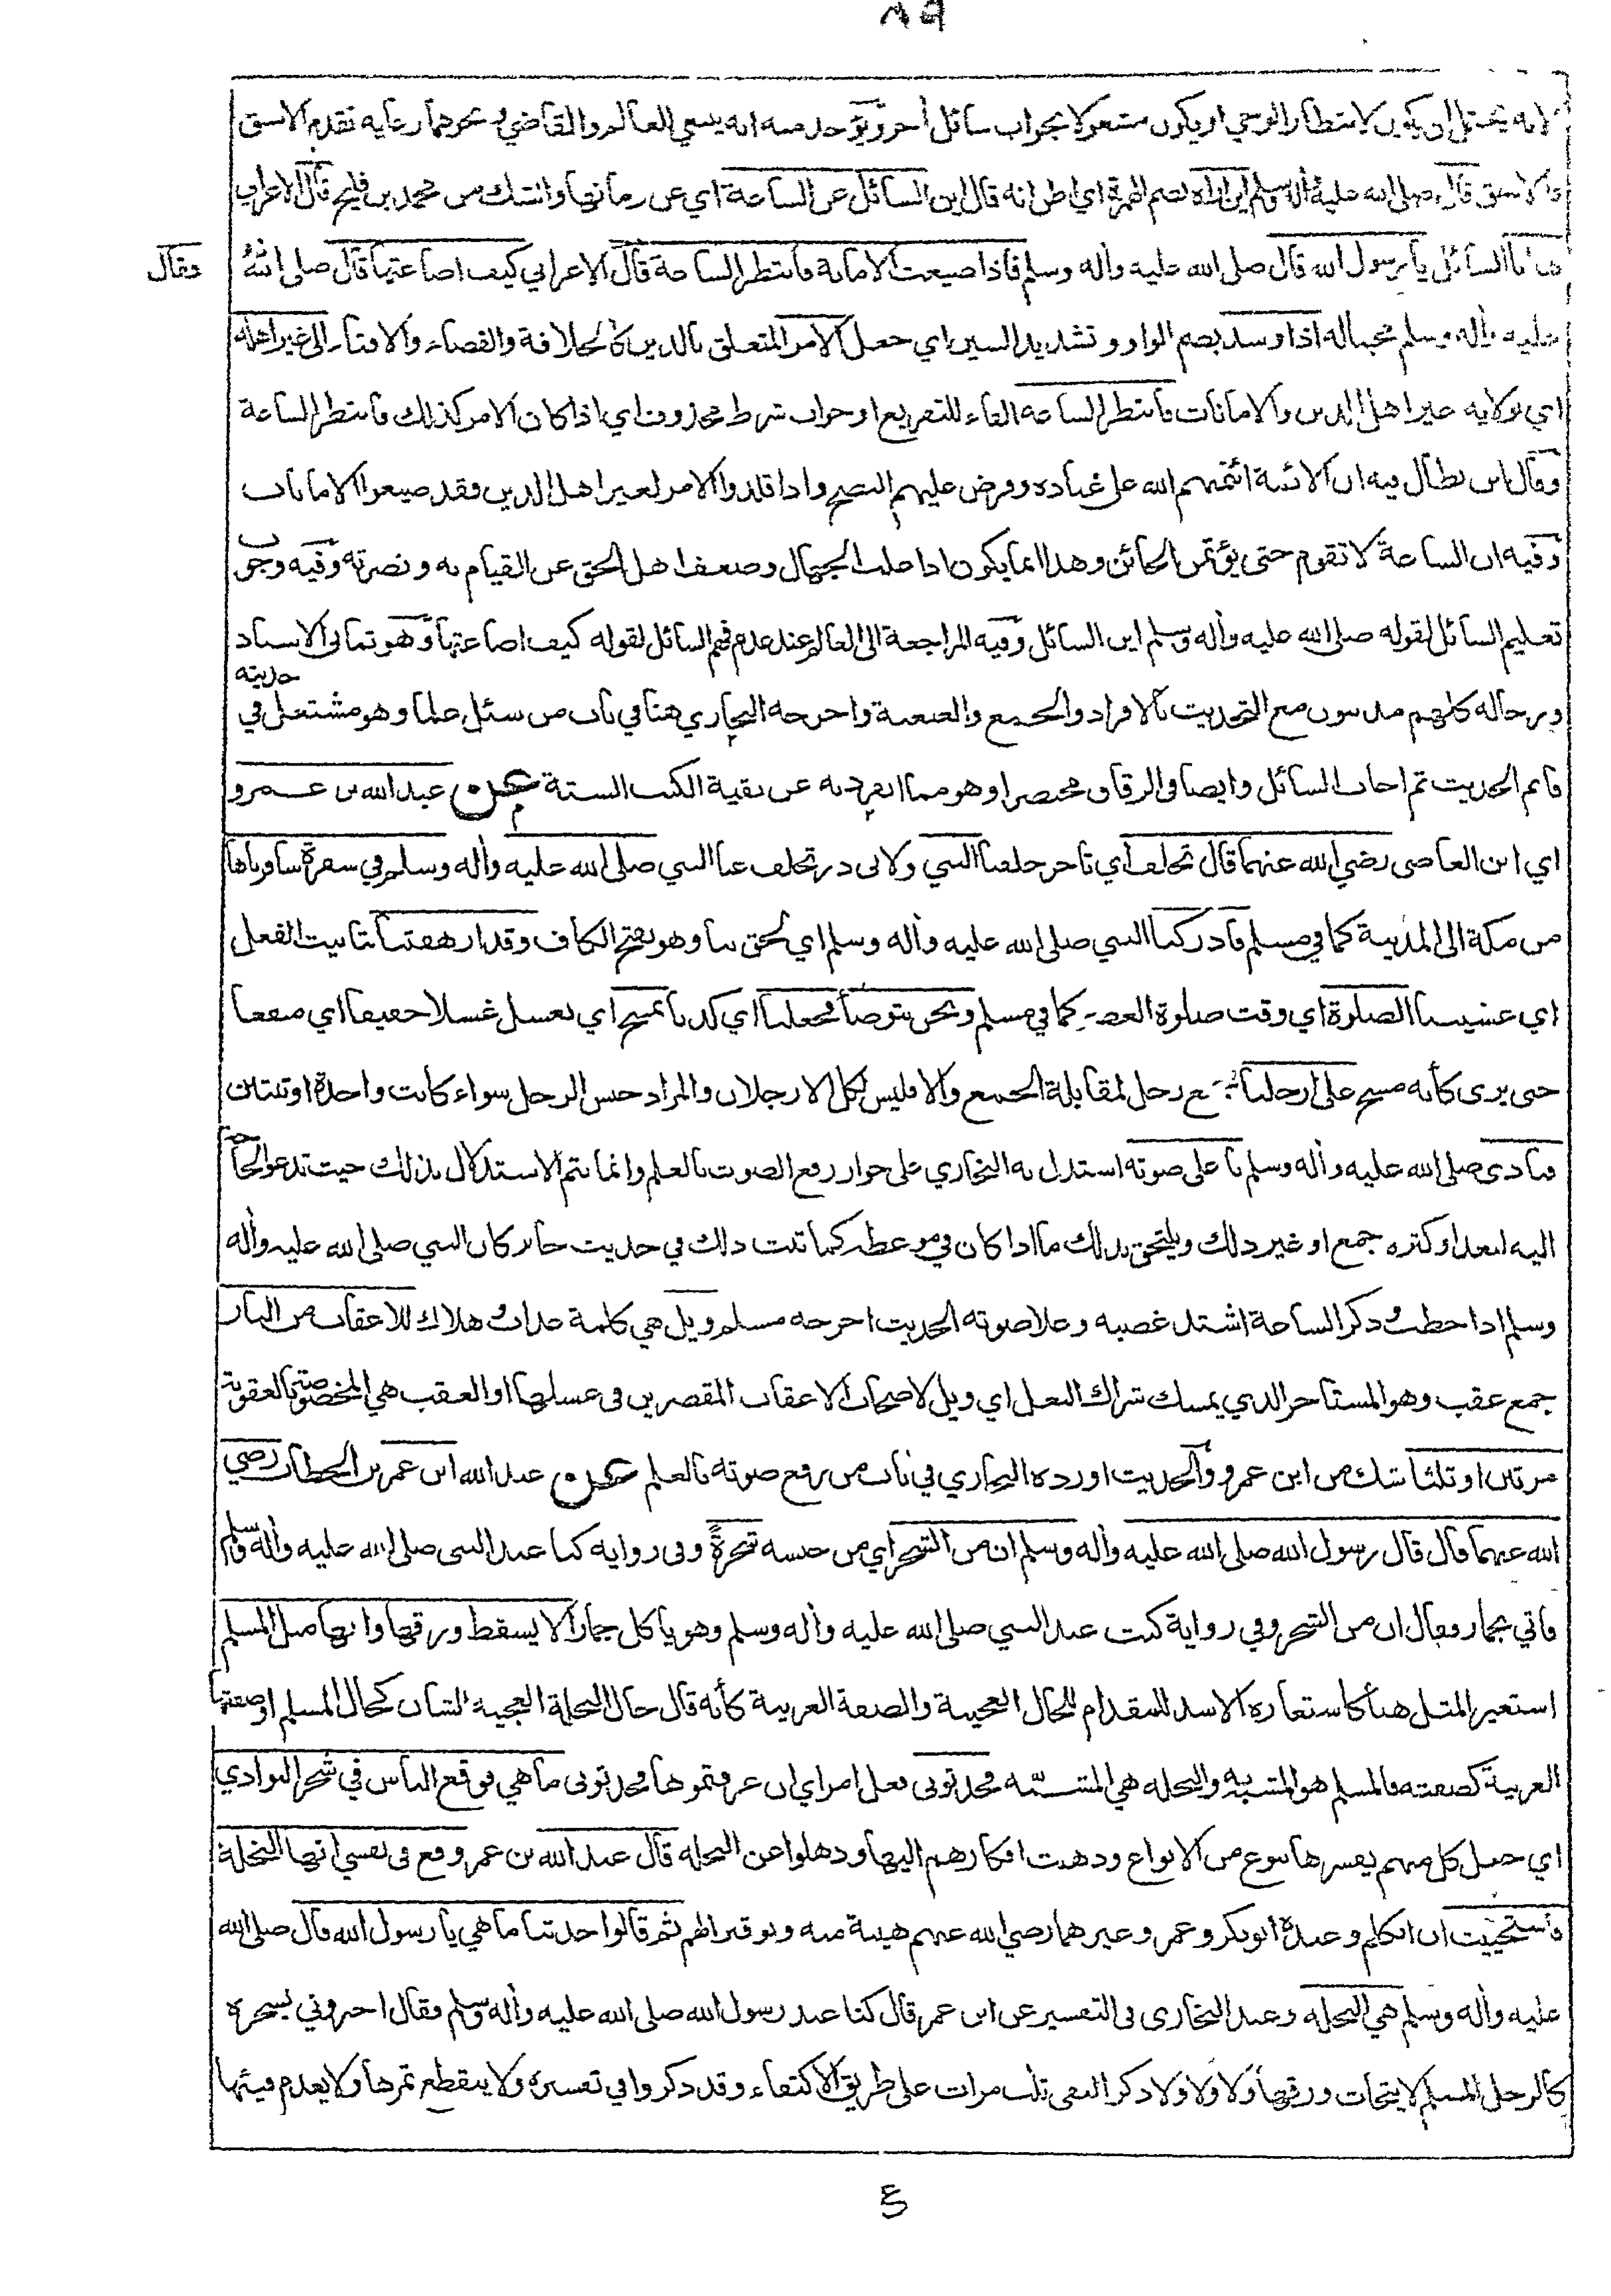 ٨٩
لانه يحتمل ان يكون لانتظار الوحي او يكون مشغولا بجواب سائل أخر ويؤخذ منه انه ينبغي للعالم والقاضي ونحوهما رعاية تقدم الاسبق
فالاسبق قال صلى الله عليه وأله وسلم اين اراه بضم الهمزة اي اظن انه قال اين السائل عن الساعة اي عن زمانها والشك من محمد بن فليح قال الاعرابي
ها انا السائل يا رسول الله قال صلى الله عليه وأله وسلم فاذا ضيعت الامانة فانتظر الساعة قال الاعرابي كيف اضاعتها قال صلى الله
فقال
عليه وأله وسلم مجيبا له اذا وسد بضم الواو و تشديد السين اي جعل الامر المتعلق بالدين كالخلافة والقضاء والافتاء الى غير اهله
اي بولاية غير اهل الدين والامانات فانتظر الساعة الفاء للتفريع او جواب شرط محذوف اي اذا كان الامر كذلك فانتظر الساعة
وقال ابن بطال فيه ان الائمة ائتمنهم الله على عباده وفرض عليهم النصح واذا قلدوا الامر لغير اهل الدين فقد ضيعوا الامانات
وفيه ان الساعة لا تقوم حتى يؤتمن الخائن وهذا انما يكون اذا غلب الجهال وضعف اهل الحق عن القيام به و نصرته وفيه وجوب
تعليم السائل لقوله صلى الله عليه وأله وسلم اين السائل وفيه المراجعة الى العالم عند عدم فهم السائل لقوله كيف اضاعتها وهو ثماني الاسناد
ورجاله كلهم مدنيون مع التحديث بالافراد والجمع والعنعنة واخرجه البخاري هنا في باب من سئل علما وهو مشتغل في حديثه
فاتم الحديث ثم اجاب السائل وايضا في الرقاق مختصرا وهو مما انفرد به عن بقية الكتب الستة عن عبد الله بن عمرو
اي ابن العاصي رضي الله عنهما قال تخلف اي تاخر خلفنا النبي ولابي ذر تخلف عنا النبي صلى الله عليه وأله وسلم في سفرة سافرناها
من مكة الى المدينة كما في مسلم فادركنا النبي صلى الله عليه وأله وسلم اي لحق بنا وهو بفتح الكاف وقد ارهقتنا بتانيث الفعل
اي غشيتنا الصلوة اي وقت صلوة العصر كما في مسلم ونحن نتوضأ فجعلنا اي كدنا نمسح اي نغسل غسلا خفيفا اي مبقعا
حتى يرى كأنه مسح على ارجلنا جمع رجل لمقابلة الجمع والا فليس لكل الا رجلان والمراد جنس الرجل سواء كانت واحدة او ثنتين
فنادى صلى الله عليه وأله وسلم باعلى صوته استدل به البخاري على جواز رفع الصوت بالعلم وانما يتم الاستدلال بذلك حيث تدعو الحاجة
اليه لبعد او كثرة جمع او غير ذلك ويلتحق بذلك ما اذا كان في موعظة كما ثبت ذلك في حديث جابر كان النبي صلى الله عليه وأله
وسلم اذا خطب وذكر الساعة اشتد غضبه وعلا صوته الحديث اخرجه مسلم ويل هي كلمة عذاب وهلاك للاعقاب من النار
جمع عقب وهو المستاخر الذي يمسك شراك النعل اي ويل لاصحاب الاعقاب المقصرين في غسلها او العقب هي المخصوصة بالعقوبة
مرتين او ثلثا شك من ابن عمرو والحديث اورده البخاري في باب من رفع صوته بالعلم عن عبد الله ابن عمر بن الخطاب رضي
الله عنهما قال قال رسول الله صلى الله عليه وأله وسلم ان من الشجر اي من جنسه شجرة وفي رواية كنا عند النبي صلى الله عليه وأله وسلم
فاتي بجمار فقال ان من الشجر وفي رواية كنت عند النبي صلى الله عليه وأله وسلم وهو يأكل جمارا لا يسقط ورقها وانها مثل المسلم
استعير المثل هنا كاستعارة الاسد للمقدام للحال العجيبة والصفة الغريبة كأنه قال حال النخلة العجيبة الشان كحال المسلم او صفتها
الغريبة كصفته فالمسلم هو المشبه به والنخلة هي المشبّه فحدثوني فعل امر اي ان عرفتموها فحدثوني ما هي فوقع الناس في شجر البوادي
اي جعل كل منهم يفسرها بنوع من الانواع وذهبت افكارهم اليها وذهلوا عن النخلة قال عبد الله بن عمر ووقع في نفسي انها النخلة
فاستحييت ان اتكلم وعنده ابو بكر وعمر وغيرهما رضي الله عنهم هيبة منه وتوقيرا لهم ثم قالوا حدثنا ما هي يا رسول الله قال صلى الله
عليه وأله وسلم هي النخلة وعند البخاري في التفسير عن ابن عمر قال كنا عند رسول الله صلى الله عليه وأله وسلم فقال اخبروني بشجرة
كالرجل المسلم لا يتحات ورقها ولا ولا ولا ذكر النفي ثلث مرات على طريق الاكتفاء وقد ذكروا في تفسيره ولا ينقطع ثمرها ولا يعدم فيئها